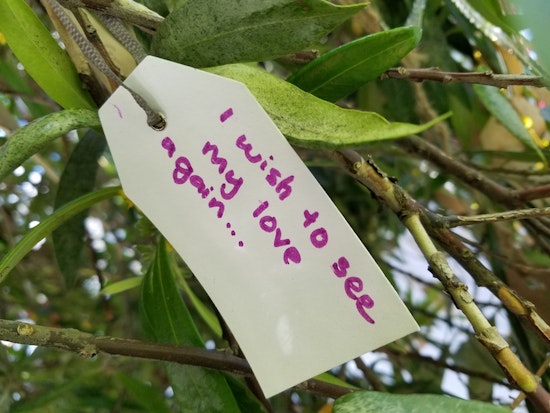 I wish to see
my love
again...